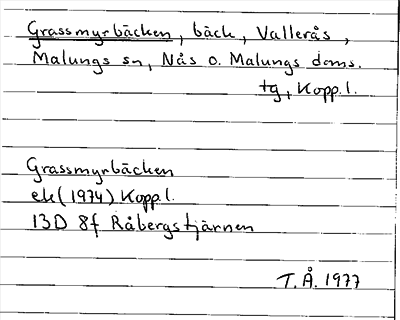 Grassmyrbäcken, bäck, Vallerås,
Malungs sn, Nås o. Malungs doms.
tg, Kopp.l.
Grassmyrbäcken
ek (1974) Kopp.l.
13D 8f Råbergstjärnen
T.Å. 1977